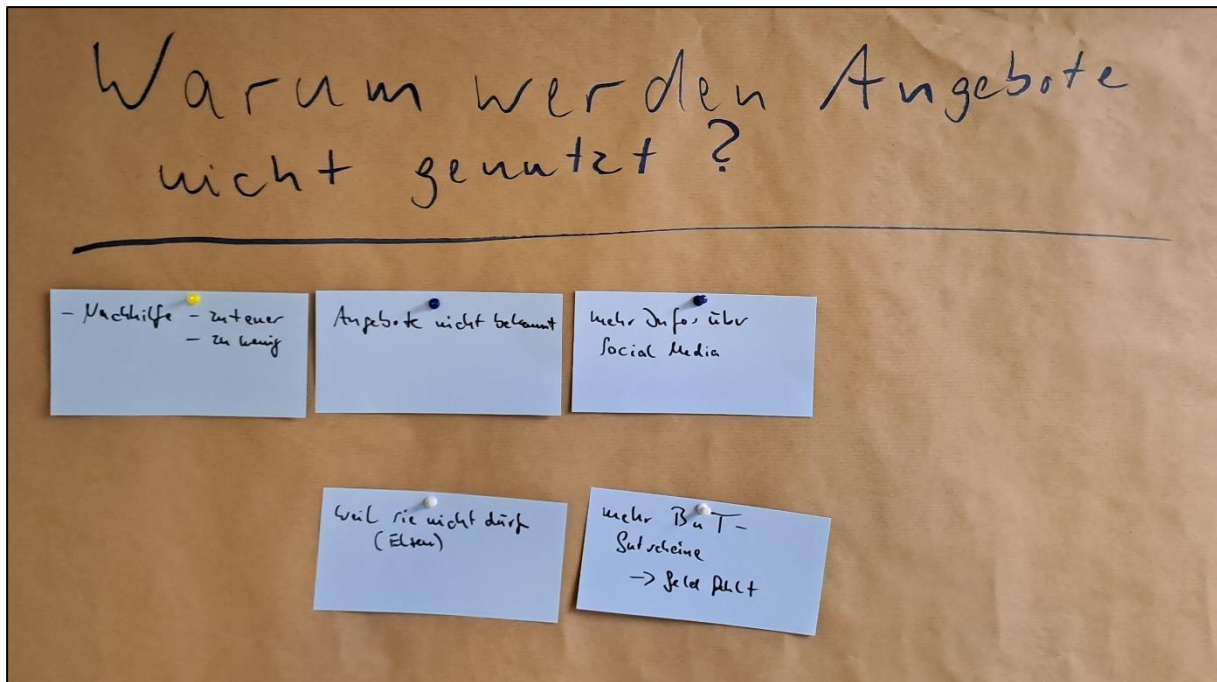 Warum werden Angebote
nicht genutzt?
- Nachhilfe - zu teuer
- zu wenig
Angebote nicht bekannt
mehr Infos über
Social Media
Weil sie nicht dürf
(Eltern)
mehr BuT-
Gutscheine
-> Geld fehlt